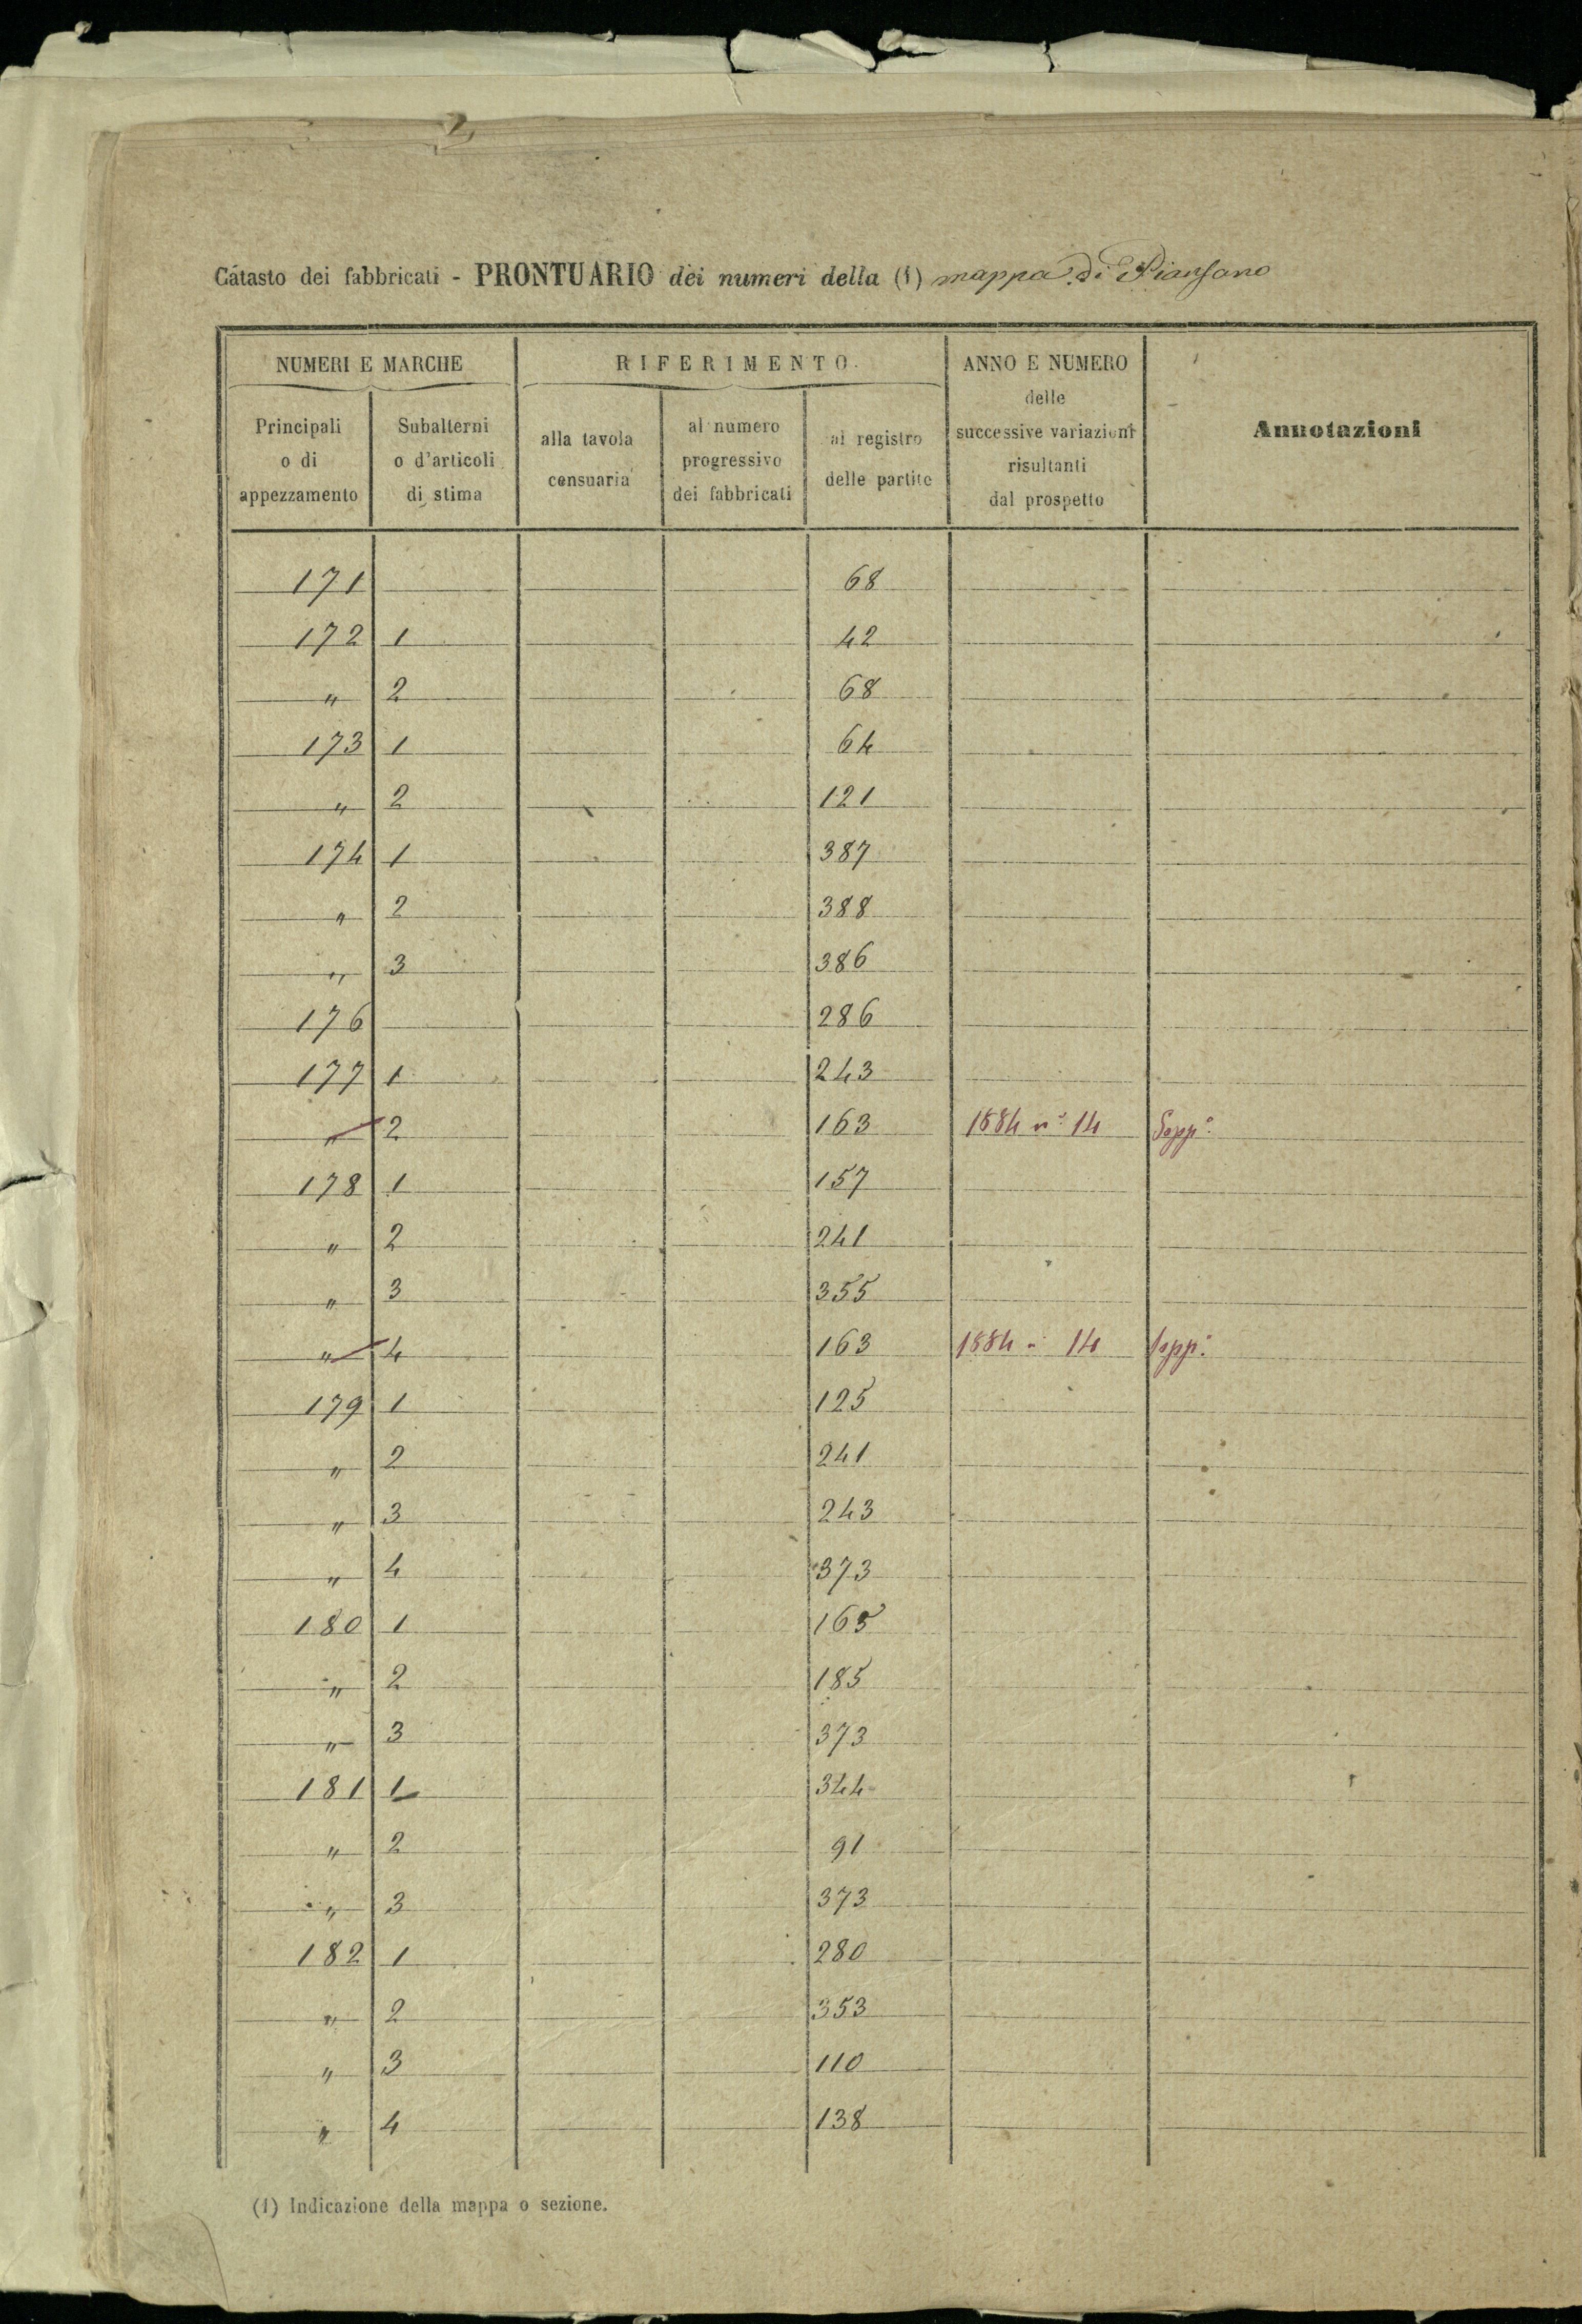 Catasto dei fabbricati - PRONTUARIO dei numeri della (1) mappa di Piansano
NUMERI E MARCHE
Principali
o di
appezzamento
Subalterni
o d'articoli
di stima
RIFERIMENTO.
alla tavola
censuaria
al numero
progressivo
dei fabbricati
al registro
delle partite
ANNO E NUMERO
delle
successive variazioni
risultanti
dal prospetto
Annotazioni
171 68
172 1 42
" 2 68
173 1 64
" 2 121
174 1 387
" 2 388
" 3 386
176 286
177 1 243
" 2 163 1884 n° 14 Sopp°
178 1 157
" 2 241
" 3 355
" 4 163 1884 " 14 Sopp°
179 1 125
" 2 241
" 3 243
" 4 373
180 1 165
" 2 185
" 3 373
181 1 344
" 2 91
" 3 373
182 1 280
" 2 353
" 3 110
" 4 138
(1) Indicazione della mappa o sezione.